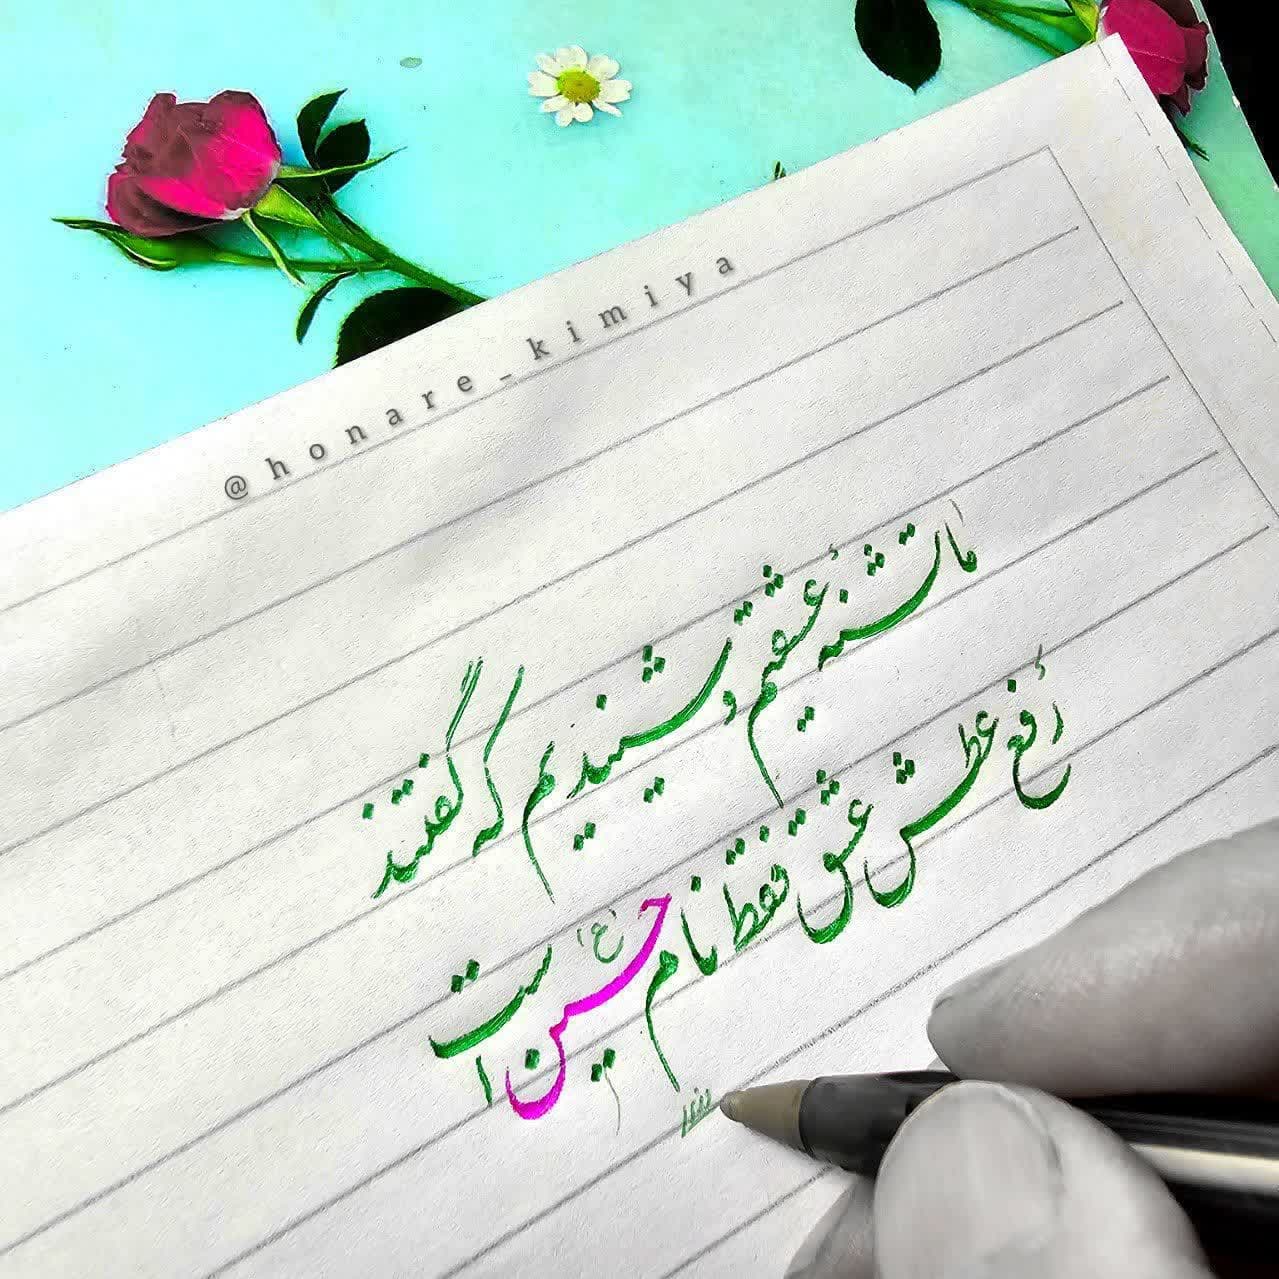 @honare_kimiya
ما تشنهٔ عشقیم و شنیدیم که گفتند
رفع عطش عشق فقط نام حسین (ع) است